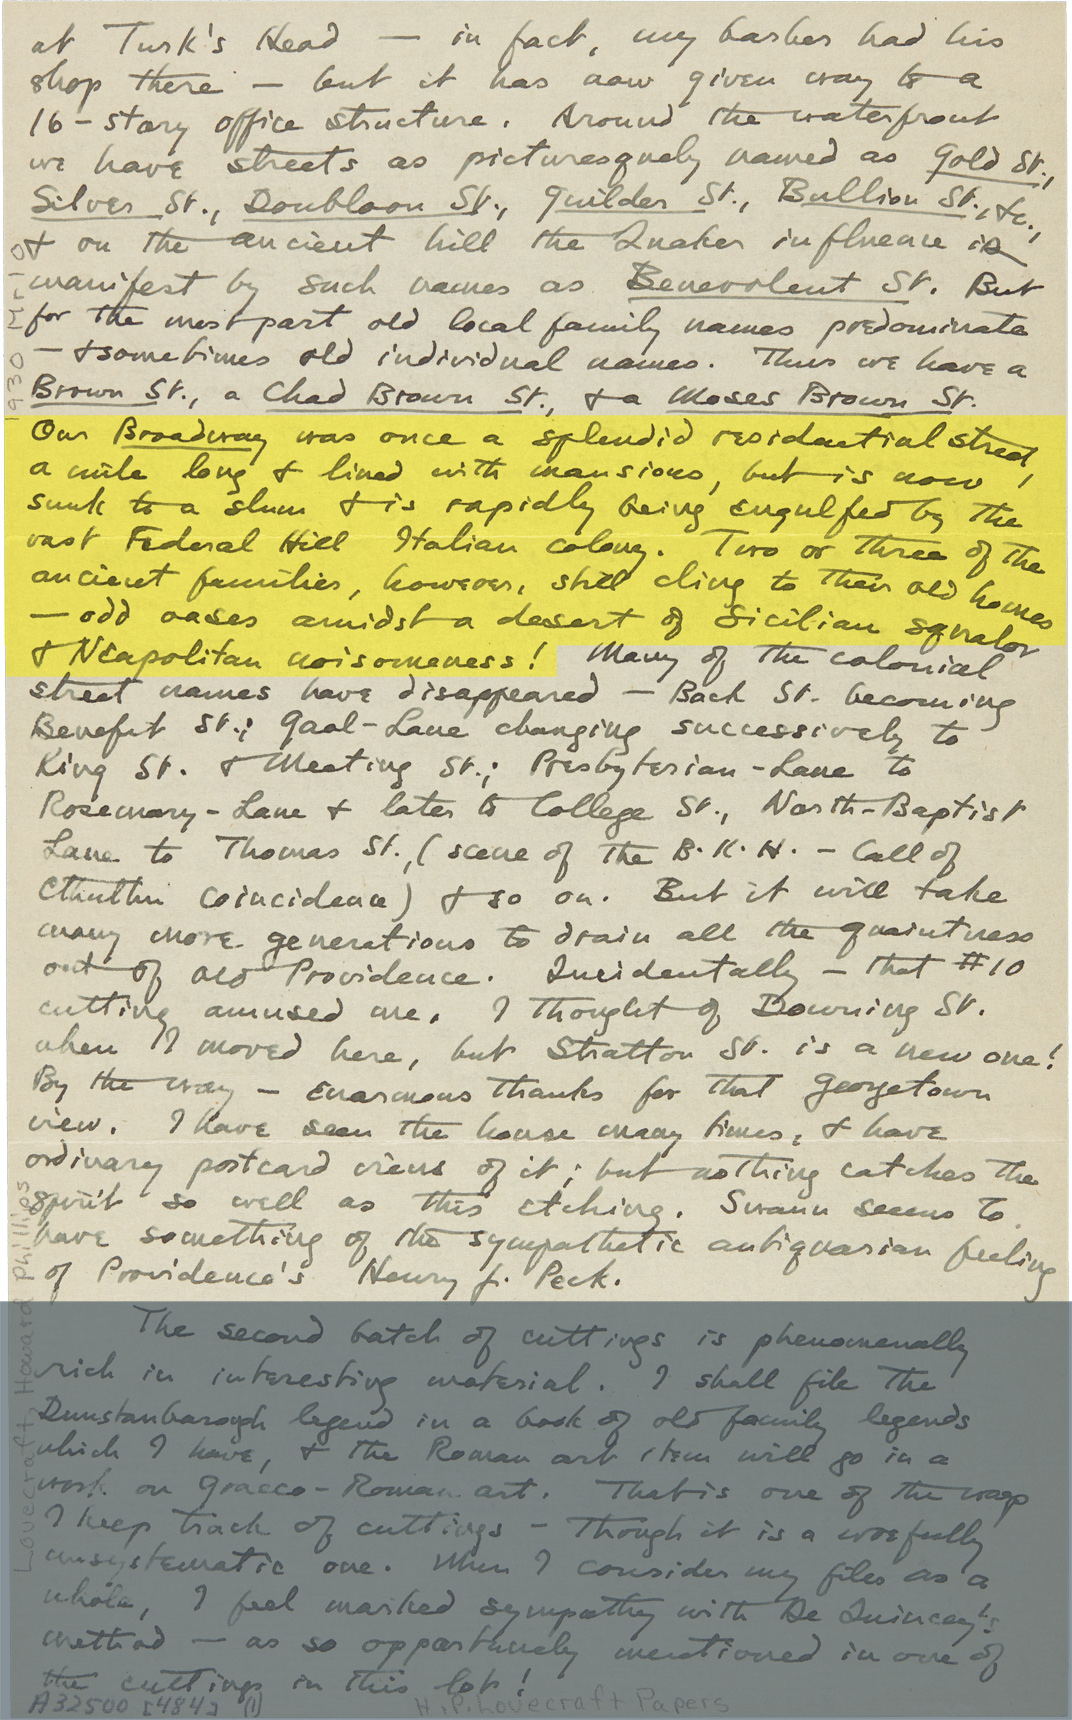 at Turk's Head — in fact, my barber had his
shop there — but it has now given way to a
16-story office structure. Around the waterfront
we have streets as picturesquely named as Gold St.,
Silver St., Doubloon St., Guilder St., Bullion St., &c.,
& on the ancient hill the Quaker influence is
manifest by such names as Benevolent St. But
for the most part old local family names predominate
— & sometimes old individual names. Thus we have a
Brown St., a Chad Brown St., & a Moses Brown St.
Our Broadway was once a splendid residential street,
a mile long & lined with mansions, but is now
sunk to a slum & is rapidly being engulfed by the
vast Federal Hill Italian colony. Two or three of the
ancient families, however, still cling to their old homes
— odd oases amidst a desert of Sicilian squalor
& Neapolitan noisomeness! Many of the colonial
street names have disappeared — Back St. becoming
Benefit St.; Gaol-Lane changing successively to
King St. & Meeting St.; Presbyterian-Lane to
Rosemary-Lane & later to College St., North-Baptist
Lane to Thomas St., (scene of the B.K.H. — Call of
Cthulhu coincidence) & so on. But it will take
many more generations to drain all the quaintness
out of old Providence. Incidentally — that #10
cutting amused me. I thought of Downing St.
when I moved here, but Stratton St. is a new one!
By the way — enormous thanks for that Georgetown
view. I have seen the house many times, & have
ordinary postcard views of it; but nothing catches the
spirit so well as this etching. Swann seems to
have something of the sympathetic antiquarian feeling
of Providence's Henry J. Peck.
The second batch of cuttings is phenomenally
rich in interesting material. I shall file the
Dunstanborough legend in a book of old family legends
which I have, & the Roman art item will go in a
work on Graeco-Roman art. That is one of the ways
I keep track of cuttings — though it is a woefully
unsystematic one. When I consider my files as a
whole, I feel marked sympathy with De Quincey's
method — as so opportunely mentioned in one of
the cuttings in this lot!
A32500 [484] (1)
H.P. Lovecraft Papers
Lovecraft, Howard Phillips
1930 Mr 10